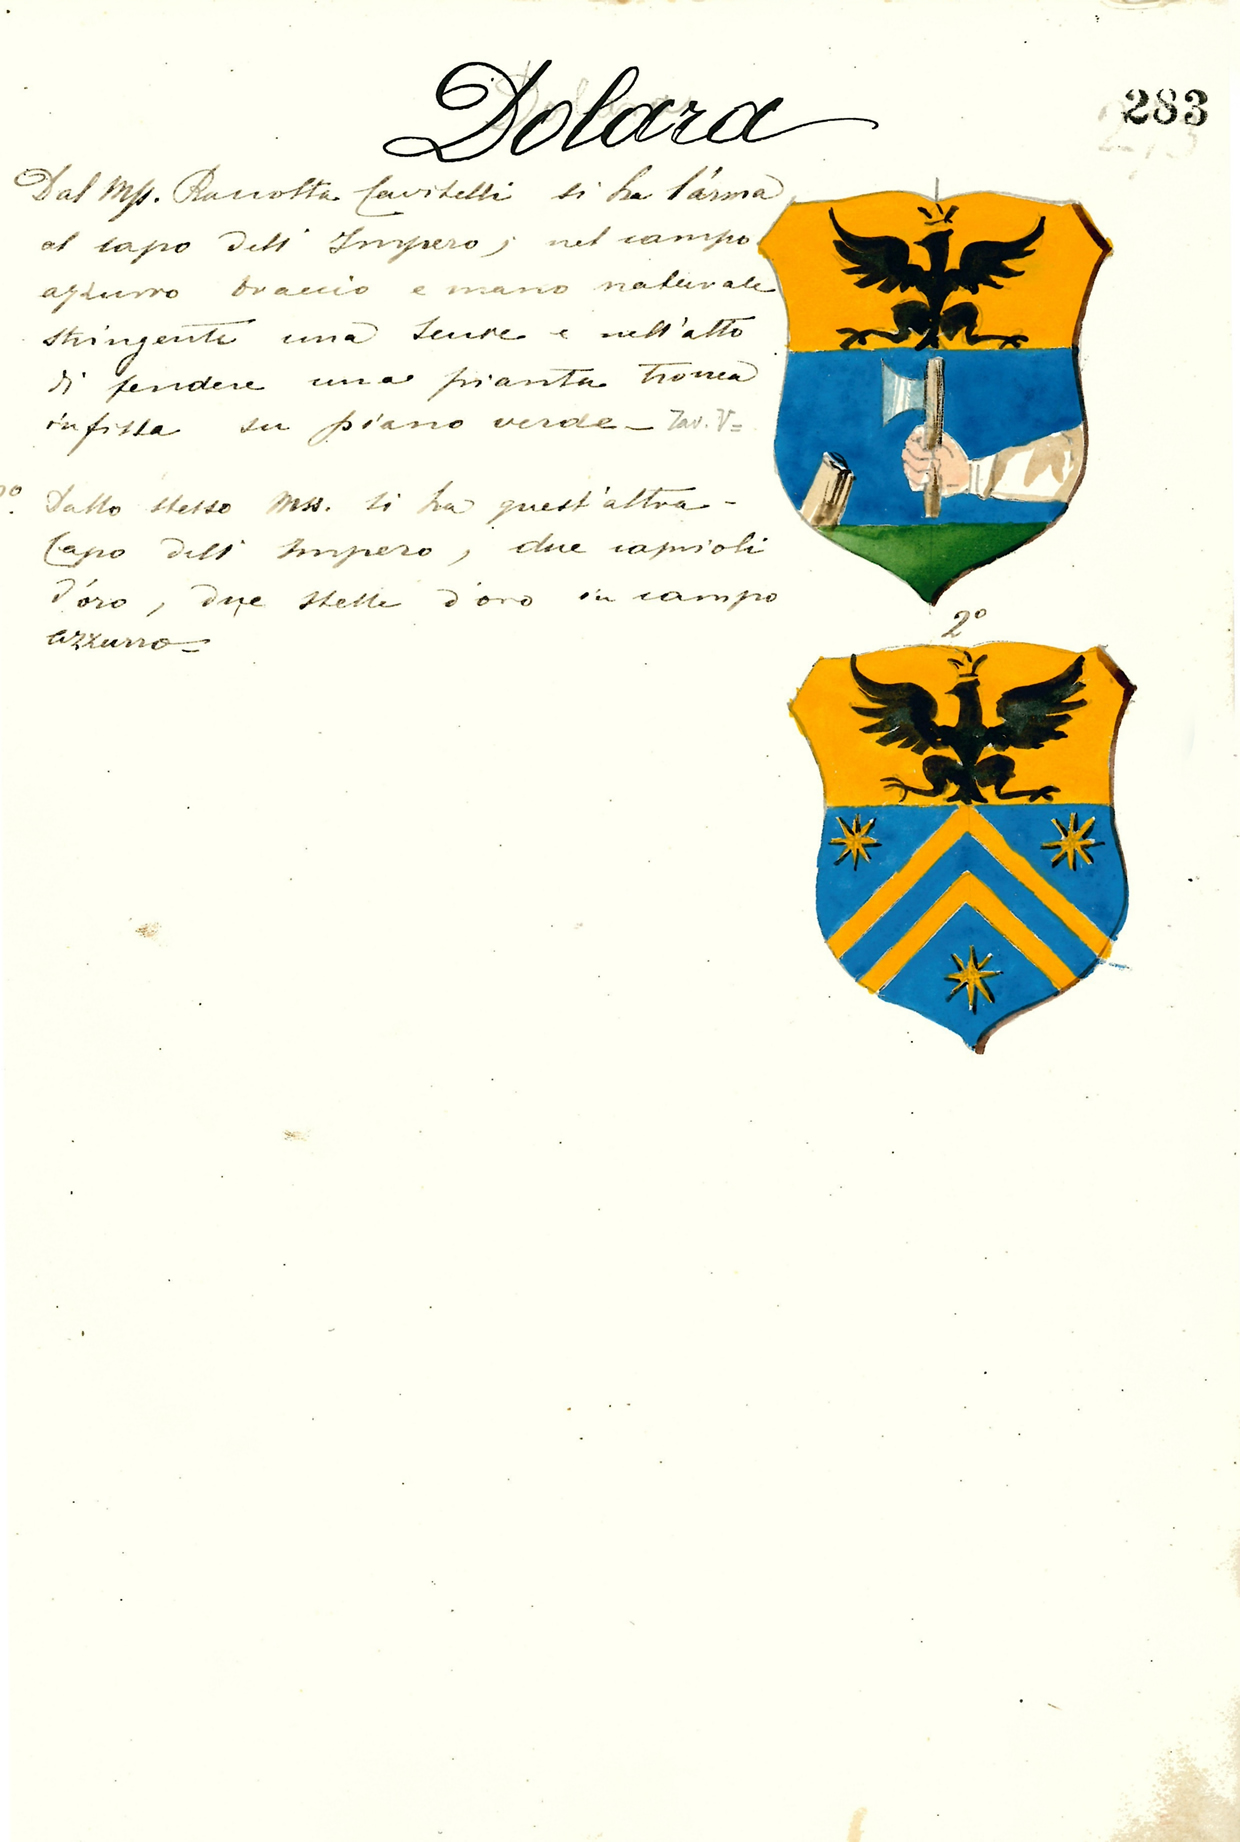 Dolara
283
Dal Mss. Raccolta Cavitelli si ha l'arma
al capo dell' Impero; nel campo
azzurro braccio e mano naturale
stringente una scure e nell'atto
di fendere una pianta tronca
infissa su piano verde – Tav. V=
2º Dallo stesso Mss. si ha quest'altra –
Capo dell' Impero, due caprioli
d'oro, due stelle d'oro in campo
azzurro=
2º